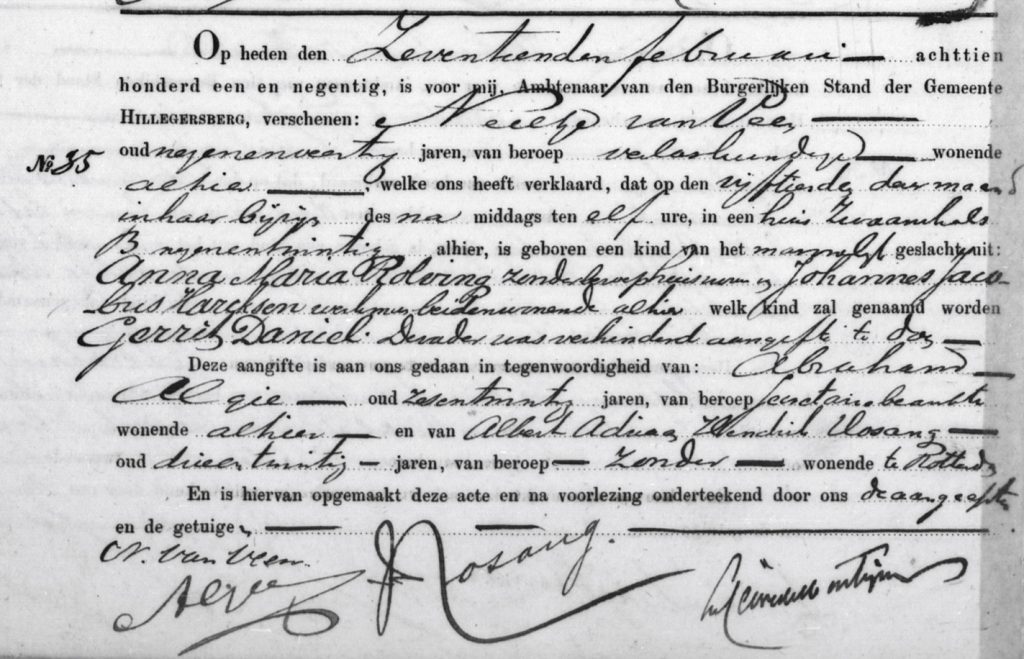 Op heden den Zeventienden februari achttien
honderd een en negentig, is voor mij, Ambtenaar van den Burgerlijken Stand der Gemeente
HILLEGERSBERG, verschenen: Neeltje van Veen
No. 35 oud negenenveertig jaren, van beroep verloskundige wonende
alhier, welke ons heeft verklaard, dat op den vijftienden dezer maand
in haar bijzijn des na middags ten elf ure, in een huis Zwaanshals
B negenentwintig alhier, is geboren een kind van het mannelijk geslacht, uit:
Anna Maria Rolving zonder beroep huisvrouw van Johannes Jaco-
bus werkman beiden wonende alhier welk kind zal genaamd worden
Gerrit Daniel. De vader was verhinderd aangifte te doen
Deze aangifte is aan ons gedaan in tegenwoordigheid van: Abraham
Algie oud zesentwintig jaren, van beroep secretariebeambte
wonende alhier en van Albert Adriaan Hendrik Nosang
oud drieentwintig jaren, van beroep zonder wonende te Rotterdam
En is hiervan opgemaakt deze acte en na voorlezing onderteekend door ons de aangeefster
en de getuigen
N. van Veen
Algie Nosang.